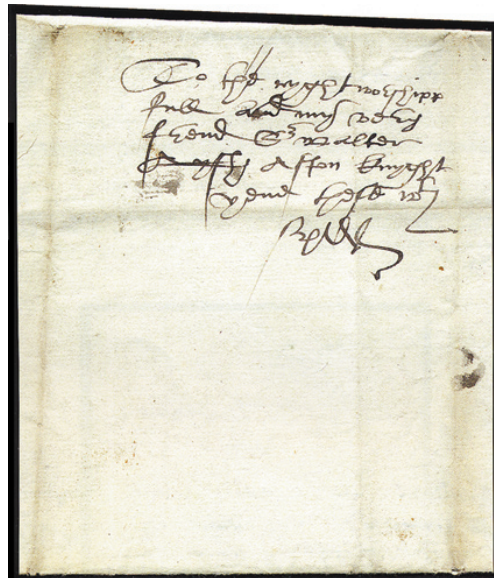 To the ryght worshipp
full and my very
frend Sr Walter
Aston knyght
yeve thesse wt
spede